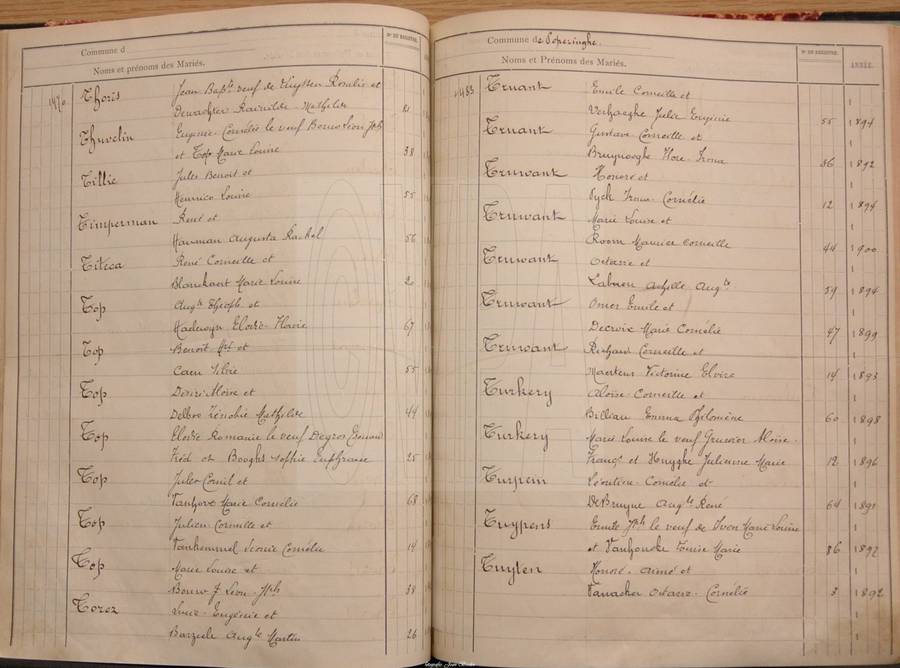 Commune d
Nº DU REGISTRE.
Noms et prénoms des Mariés.
Thoris Jean Bapte veuf de Thyssen Rosalie et
Dewachter Mathilde 81
Thuvelin Eugénie Cornélie le veuf Jph
et Top Marie Louise 38
Tillie Jules Benoit et
Louise 55
Timperman René et
Hauman Augusta Rachel 56
Titeca René Corneille et
Blanckaert Marie Louise 20
Top Augte Théoph et
Elodie 67
Top Benoit et
Caen Silvie 55
Top Désiré Aloïse et
Zénobie Mathilde 44
Top Elodie Romanie le veuf
et Sophie Euphrasie 25
Top Jules Cornil et
Vanhove Marie Cornélie 68
Top Julien Corneille et
Vankemmel Léonie Cornélie 14
Top Marie Louise et
Bouw J Léon Jph 38
Torez Louise Eugénie et
Augte Martin 26
Commune de Poperinghe.
Nº DU REGISTRE.
ANNÉE.
Noms et Prénoms des Mariés.
1483 Truant Emile Corneille et
Verhaeghe Julie Eugénie 55 1894
Truant Gustave Corneille et
Bruynooghe 36 1892
Truwant Honoré et
Cornélie 12 1894
Truwant Marie Louise et
Room Maurice Corneille 44 1900
Truwant Octavie et
Achille Augte 59 1894
Truwant Omer Emile et
Decroix Marie Cornélie 47 1899
Truwant Richard Corneille et
Maertens Victorine Elvire 14 1893
Turkery Aloïse Corneille et
Billiau Emma Philomène 60 1898
Turkery Marie Louise le veuf Aloïse
Franç. et Huyghe Julienne Marie 12 1896
Turpein Léontine Cornélie et
DeBruyne Augte René 64 1891
Tuypens Emile Jph le veuf de Marie Louise
et Louise Marie 86 1892
Tuyten Honoré Aimé et
Octavie Cornélie 3 1892